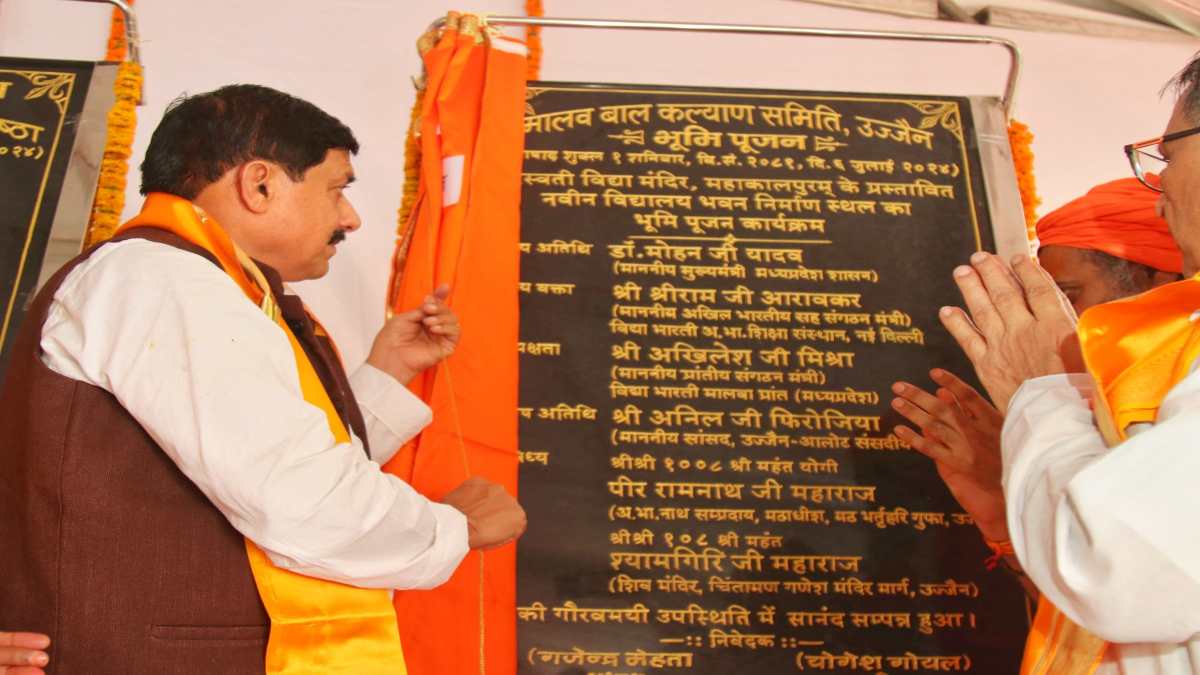 ष्ठा
२०२४)
मालव बाल कल्याण समिति, उज्जैन
भूमि पूजन
शुक्ल १ शनिवार, वि.सं. २०८१, दि. ६ जुलाई २०२४)
स्वती विद्या मंदिर, महाकालपुरम् के प्रस्तावित
नवीन विद्यालय भवन निर्माण स्थल का
भूमि पूजन कार्यक्रम
य अतिथि डॉ.मोहन जी यादव
(माननीय मुख्यमंत्री मध्यप्रदेश शासन)
य वक्ता श्री श्रीराम जी आरावकर
(माननीय अखिल भारतीय सह संगठन मंत्री)
विद्या भारती अ.भा.शिक्षा संस्थान, नई दिल्ली
यक्षता श्री अखिलेश जी मिश्रा
(माननीय प्रांतीय संगठन मंत्री)
विद्या भारती मालवा प्रांत (मध्यप्रदेश)
ष अतिथि श्री अनिल जी फिरोजिया
(माननीय सांसद, उज्जैन-आलोट संसदीय
ध्य श्रीश्री १००८ श्री महंत योगी
पीर रामनाथ जी महाराज
(अ.भा.नाथ सम्प्रदाय, मठाधीश, मठ भर्तृहरि गुफा, उ
श्रीश्री १०८ श्री महंत
श्यामगिरि जी महाराज
(शिव मंदिर, चिंतामण गणेश मंदिर मार्ग, उज्जैन)
की गौरवमयी उपस्थिति में सानंद सम्पन्न हुआ।
—:: निवेदक ::—
(गजेन्द्र मेहता (योगेश गोयल)